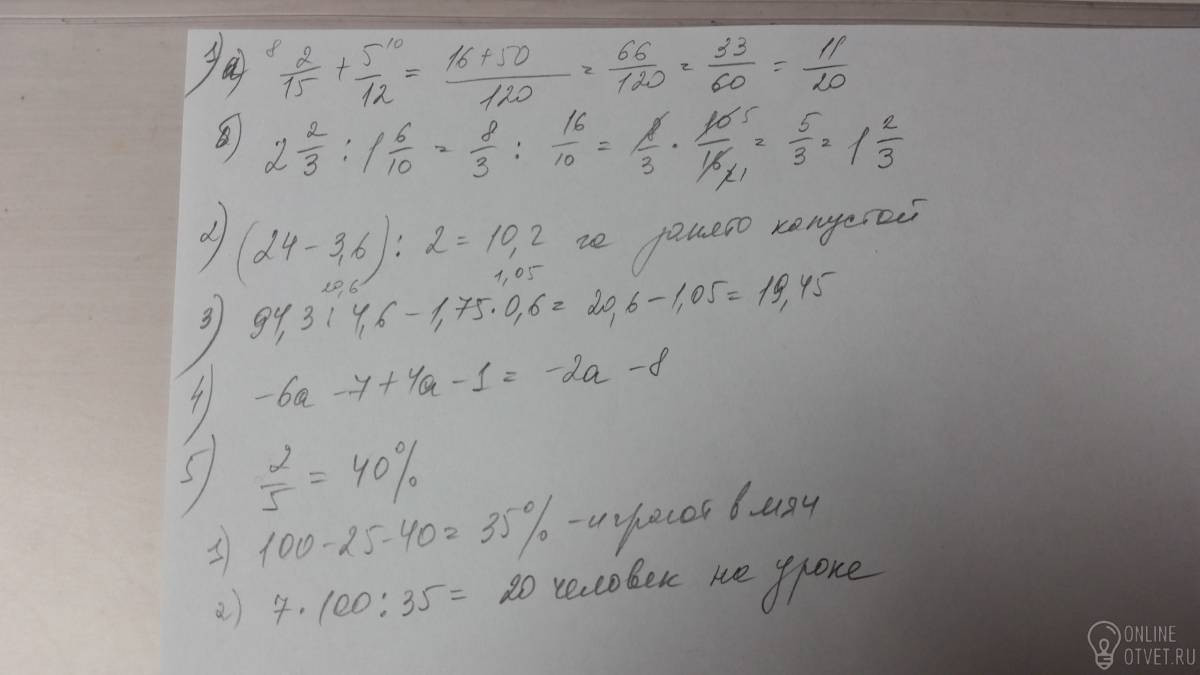 1) а) 8 2/15 + 5/12 10 = 16+50/120 = 66/120 = 33/60 = 11/20
б) 2 2/3 : 1 6/10 = 8/3 : 16/10 = 8/3 · 10 5/16 2 1 = 5/3 = 1 2/3
2) (24 - 3,6) : 2 = 10,2 га занято капустой
20,6 1,05
3) 94,3 : 4,6 - 1,75 · 0,6 = 20,6 - 1,05 = 19,45
4) -6a -7 + 4a - 1 = -2a -8
5) 2/5 = 40%
1) 100 - 25 - 40 = 35% - играют в мяч
2) 7 · 100 : 35 = 20 человек на уроке
ONLINE
OTVET.RU